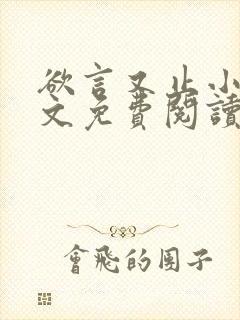 欲言又止小
文免費閱讀
會飛的團子